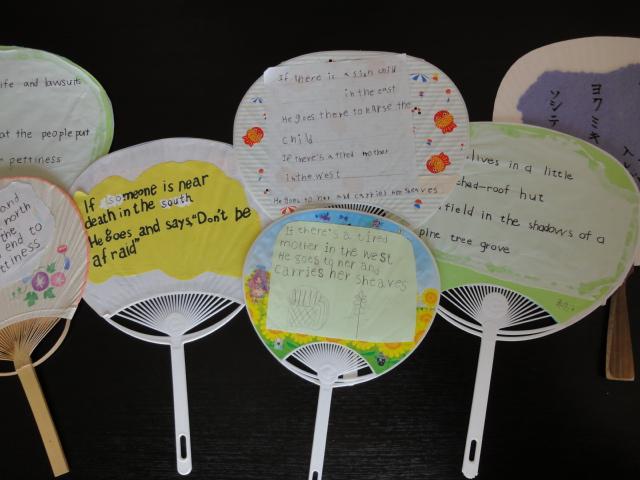 ife and lawsuits
at the people put
pettiness
and
north
the
end to
ttiness
If someone is near
death in the south
He goes and says, "Don't be
afraid"
If there is a sign child
in the east
He goes there to nurse the
child
If there's a tired mother
in the west
He goes to her and carries her sheaves
If there's a tired
mother in the west
He goes to her and
carries her sheaves
lives in a little
ched-roof hut
field in the shadows of a
pine tree grove
ヨクミキ
ソシテ